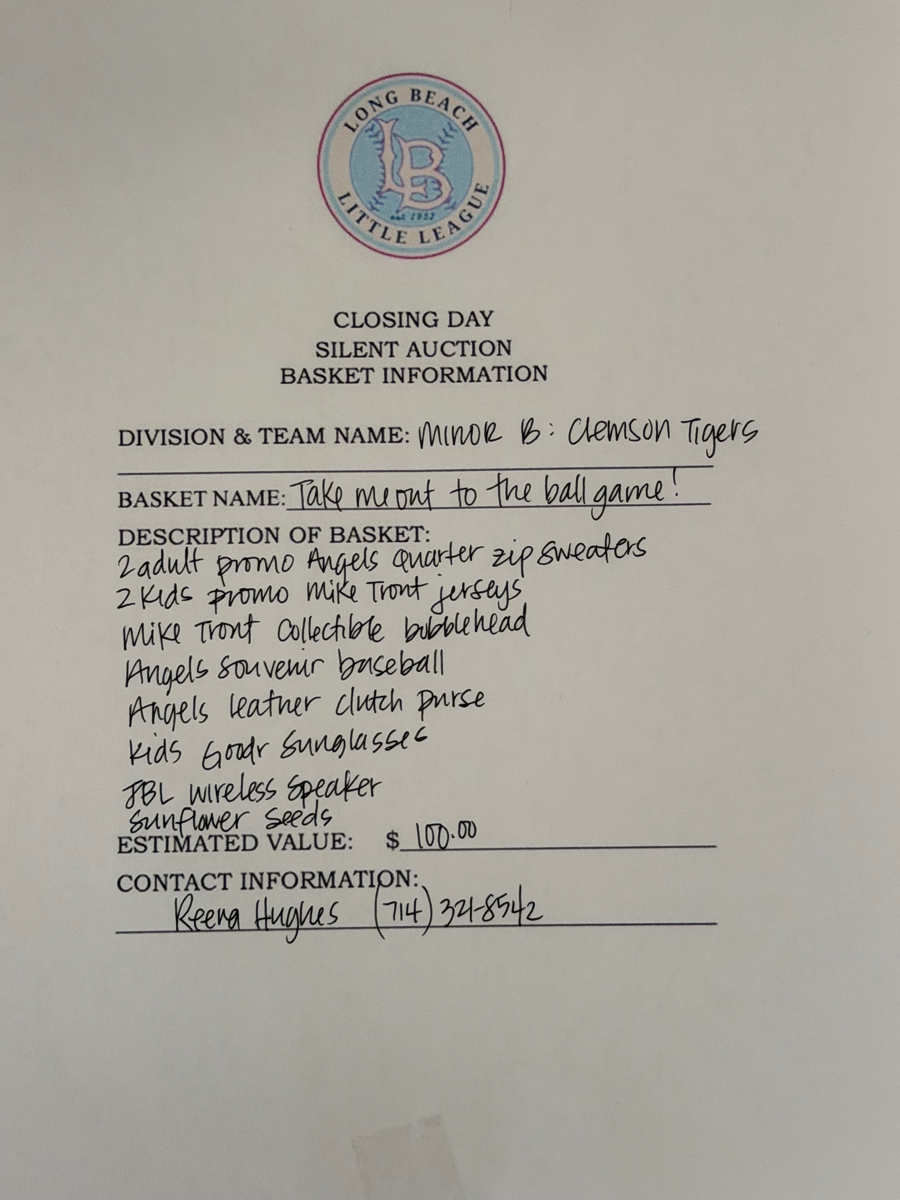 LONG BEACH
LB
est 1952
LITTLE LEAGUE
CLOSING DAY
SILENT AUCTION
BASKET INFORMATION
DIVISION & TEAM NAME: MINOR B: Clemson Tigers
BASKET NAME: Take me out to the ball game!
DESCRIPTION OF BASKET:
2 adult promo Angels Quarter zip sweaters
2 Kids promo Mike Trout jerseys
Mike Trout Collectible bobblehead
Angels souvenir baseball
Angels leather clutch purse
Kids Goodr Sunglasses
JBL wireless speaker
Sunflower seeds
ESTIMATED VALUE: $ 100.00
CONTACT INFORMATION:
Reena Hughes (714) 321-8542